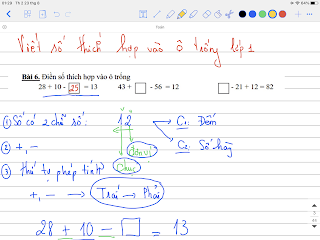 01:20 TS 2 20 thg 6
64%
Viết số thích hợp vào ô trống lớp 1
Bài 6. Điền số thích hợp vào ô trống
28 + 10 - 25 = 13 43 + □ - 56 = 12 □ - 21 + 12 = 82
① Số có 2 chữ số: 12 C₁: Đếm
② +, - Đơn vị C₂: Số hàng
Chục
③ Thứ tự phép tính
+, - → Trái → Phải
28 + 10 - □ = 13